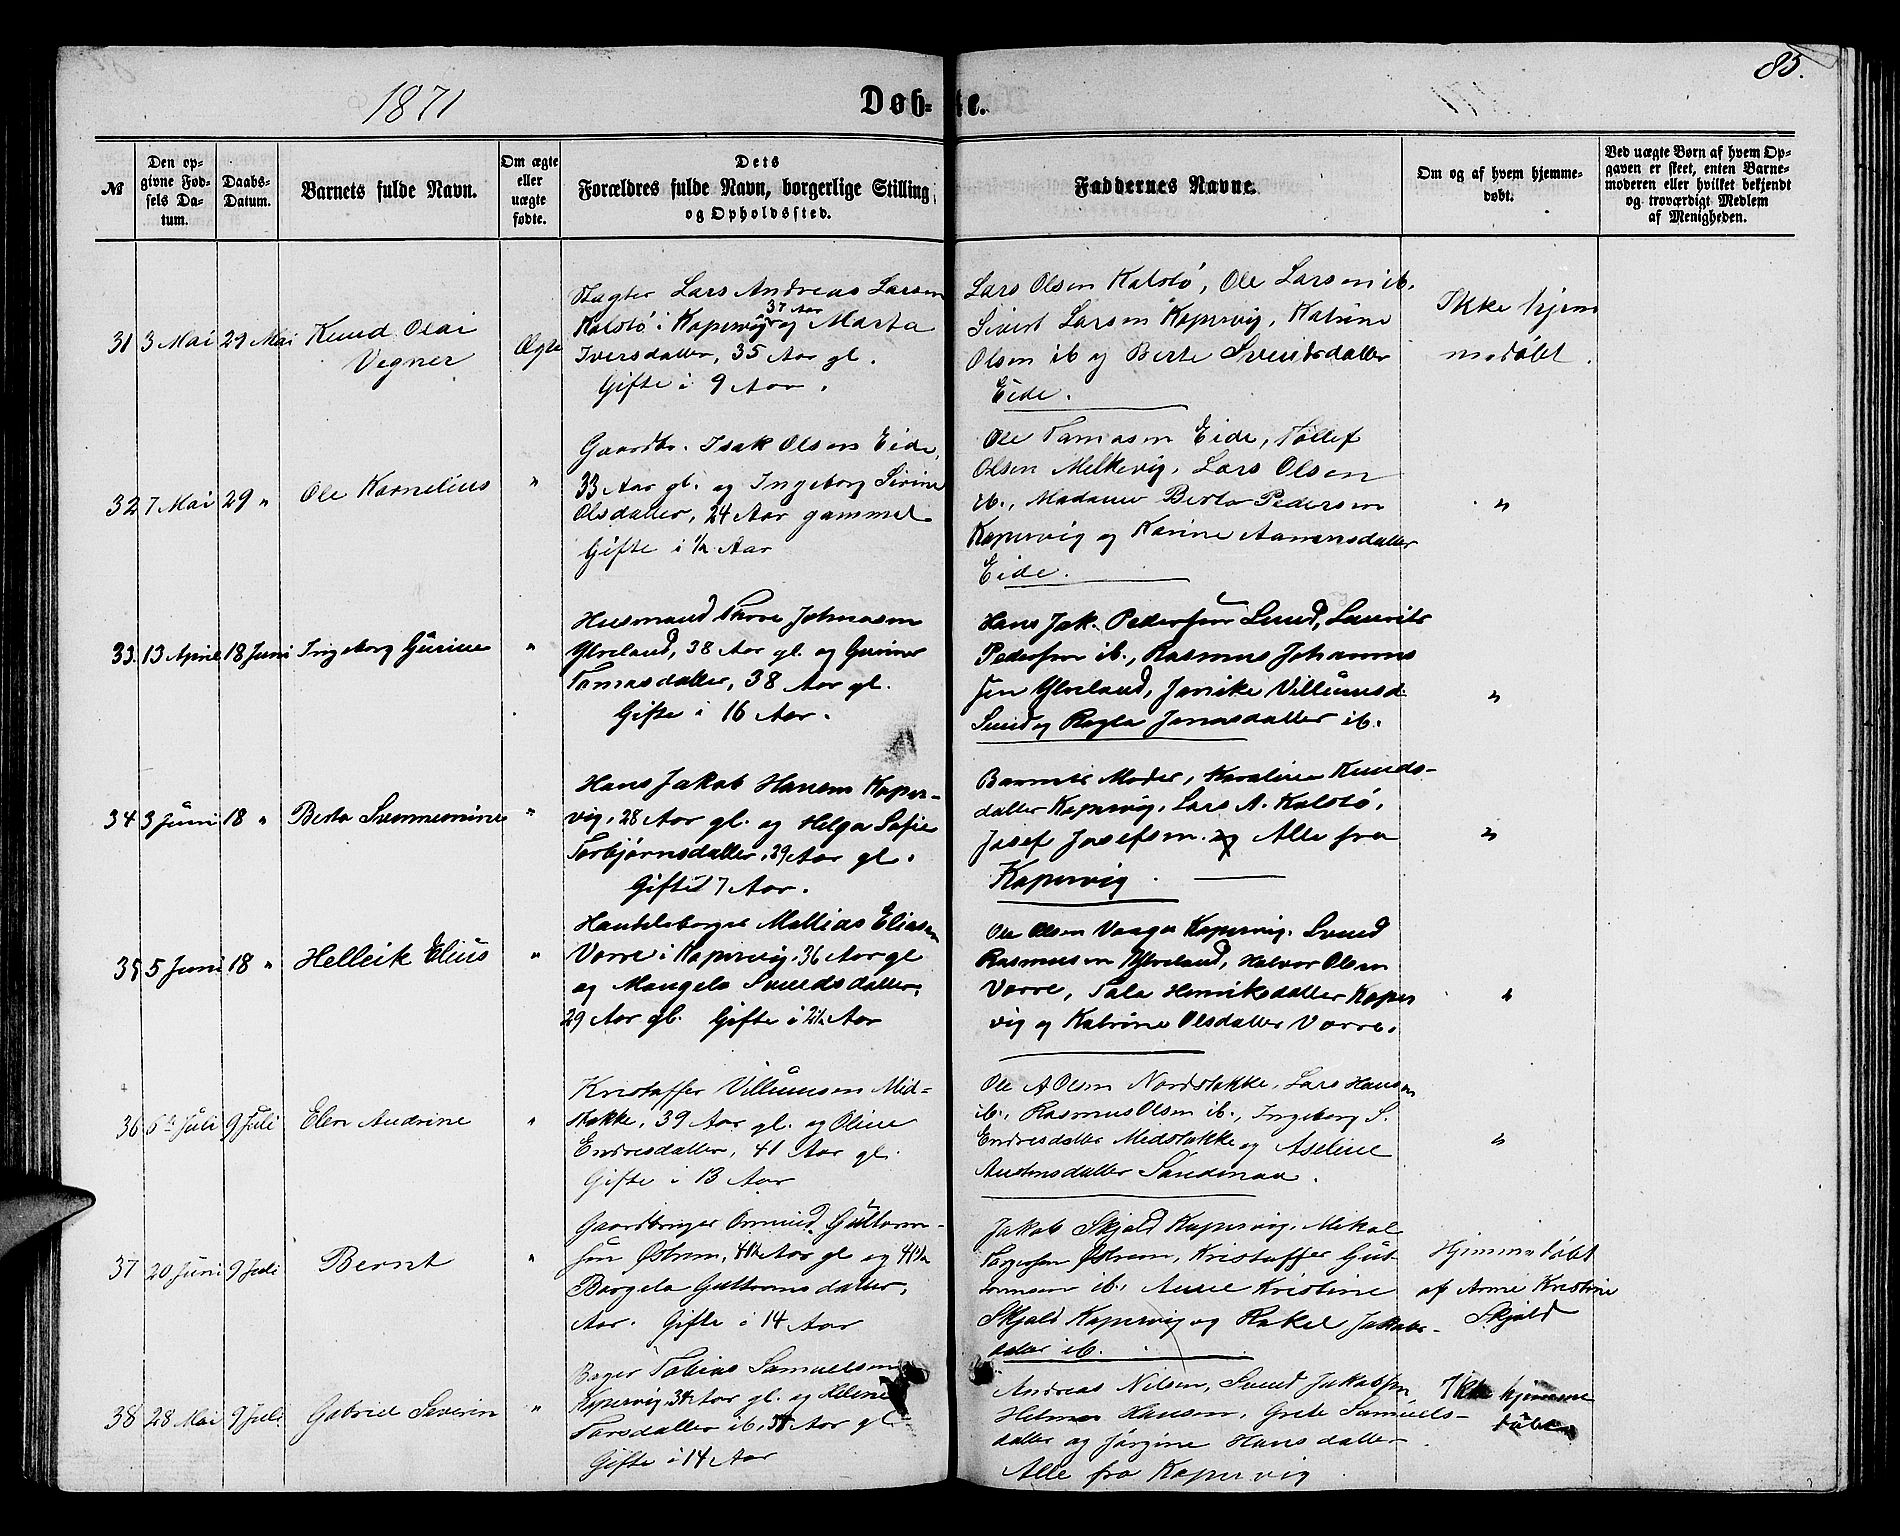 85.
1871
Døb-te.
№
Den op-
givne Fød-
sels Da-
tum.
Daabs-
Datum.
Barnets fulde Navn.
Om ægte
eller
uægte
fødte.
Dets
Forældres fulde Navn, borgerlige Stilling
og Opholdssted.
Faddernes Navne.
Om og af hvem hjemme-
døbt.
Ved uægte Børn af hvem Op-
gaven er skeet, enten Barne-
moderen eller hvilket bekjendt
og troværdigt Medlem
af Menigheden.
31 3 Mai 29 Mai
Knud Olai
Vegner
Ægte
Slagter Lars Andreas Larsen
37 Aar
Kalstø i Kopervig og Marta
Iversdatter, 35 Aar gl.
Gifte i 9 Aar.
Lars Olsen Kalstø, Ole Larsen ib.
Sivert Larsen Kopervig, Katrine
Olsen ib og Berte Svendsdatter
Eide.
Ikke hjem
medøbt.
32 7 Mai 29 "
Ole Kornelius
"
Gaardbr. Isak Olsen Eide,
33 Aar gl. og Ingeborg Serine
Olsdatter, 24 Aar gammel
Gifte i ½ Aar
Ole Tamasen Eide, Tollef
Olsen Melkevig, Lars Olsen
ib., Madame Berta Pedersen
Kopervig og Karine Aamunsdatter
Eide.
"
33. 13 April 18 Juni
Ingeborg Gurine
"
Husmand Thore Johnasen
Yhreland, 38 Aar gl. og Gurine
Tamasdatter, 38 Aar gl.
Gifte i 16 Aar.
Hans Jak. Pederssen Lund, Laurits
Pederssen ib., Rasmus Johannes
sen Yhreland, Janike Villumsd.
Lund og Ragla Jonasdatter ib.
"
34 3 Juni 18 "
Berta Svennesmine
"
Hans Jakob Hansen Koper-
vig, 28 Aar gl. og Helga Sofie
Torbjørnsdatter, 29 Aar gl.
Gifte i 7 Aar.
Barnets Moder, Karoline Knuds-
datter Kopervig, Lars A. Kalstø,
Josef Josefsen. og Alle fra
Kopervig
"
35 5 Juni 18 "
Helleik Elius
"
Handelsborger Mathias Eliasen
Vorre i Kopervig, 36 Aar gl
og Mangela Svendsdatter,
29 Aar gl. Gifte i 2½ Aar
Ole Olsen Vaage Kopervig, Svend
Rasmusen Yhreland, Halvor Olsen
Vorre, Tala Henriksdatter Koper
vig og Katrine Olsdatter Vorre.
"
36 6te Juli 9 Juli
Elen Andrine
"
Kristoffer Villumsen Mid-
stokke, 39 Aar gl. og Oline
Endresdatter, 41 Aar gl.
Gifte i 13 Aar
Ole A Olsen Nordstokke, Lars Hansen
ib., Rasmus Olsen ib., Ingeborg S.
Endresdatter Midstokke og Aseline
Austensdatter Sandenaa.
"
37 20 Juni 9 Juli
Bernt
"
Gaardbruger Omund Guttorm-
sen Østrem, 41½ Aar gl og 41½
Borgela Guttormsdatter,
Aar. Gifte i 14 Aar
Jakob Skjold Kopervig, Mikal
Torgersen Østrem, Kristoffer Gut
tormsen ib., Anne Kristine
Skjold Kopervig og Rakel Jakobs-
datter ib.
Hjemmedøbt
af Anne Kristine
Skjold
38 28 Mai 9 Juli
Gabriel Severin
"
Tobias Samuelsen
Kopervig, Aar gl. og Helene
Tarsdatter ib, Aar gl
Gifte i 14 Aar
Andreas Nilsen, Svend Jakobsen
Helmer Hansen, Grete Samuels-
datter og Jørgine Hansdatter
Alle fra Kopervig
Ikke hjemme
døbt